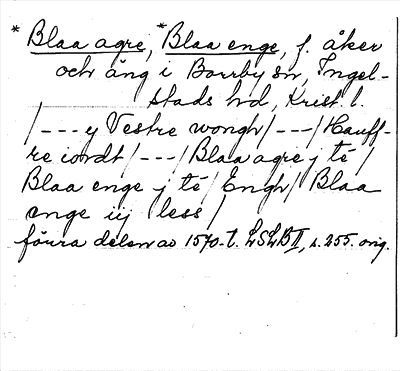 * Blaa agre, * Blaa enge, f. åker
och äng i Borrby sn, Ingel-
stads hd, Krist. l.
/---y Vestre wongh/---/Hauff-
re iordt/---/Blaa agre j té/
Blaa enge j té/Engh/Blaa
enge iij less/
förra delen av 1570-t. LSLB II, s. 255. orig.